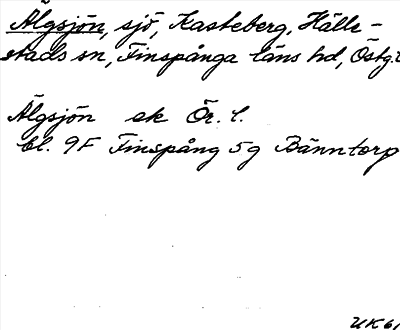 Älgsjön, sjö, Kasteberg, Hälle-
stads sn, Finspånga läns hd, Östg.l
Älgsjön ek Ör. l.
bl. 9F Finspång 5g Bänntorp
UK 61